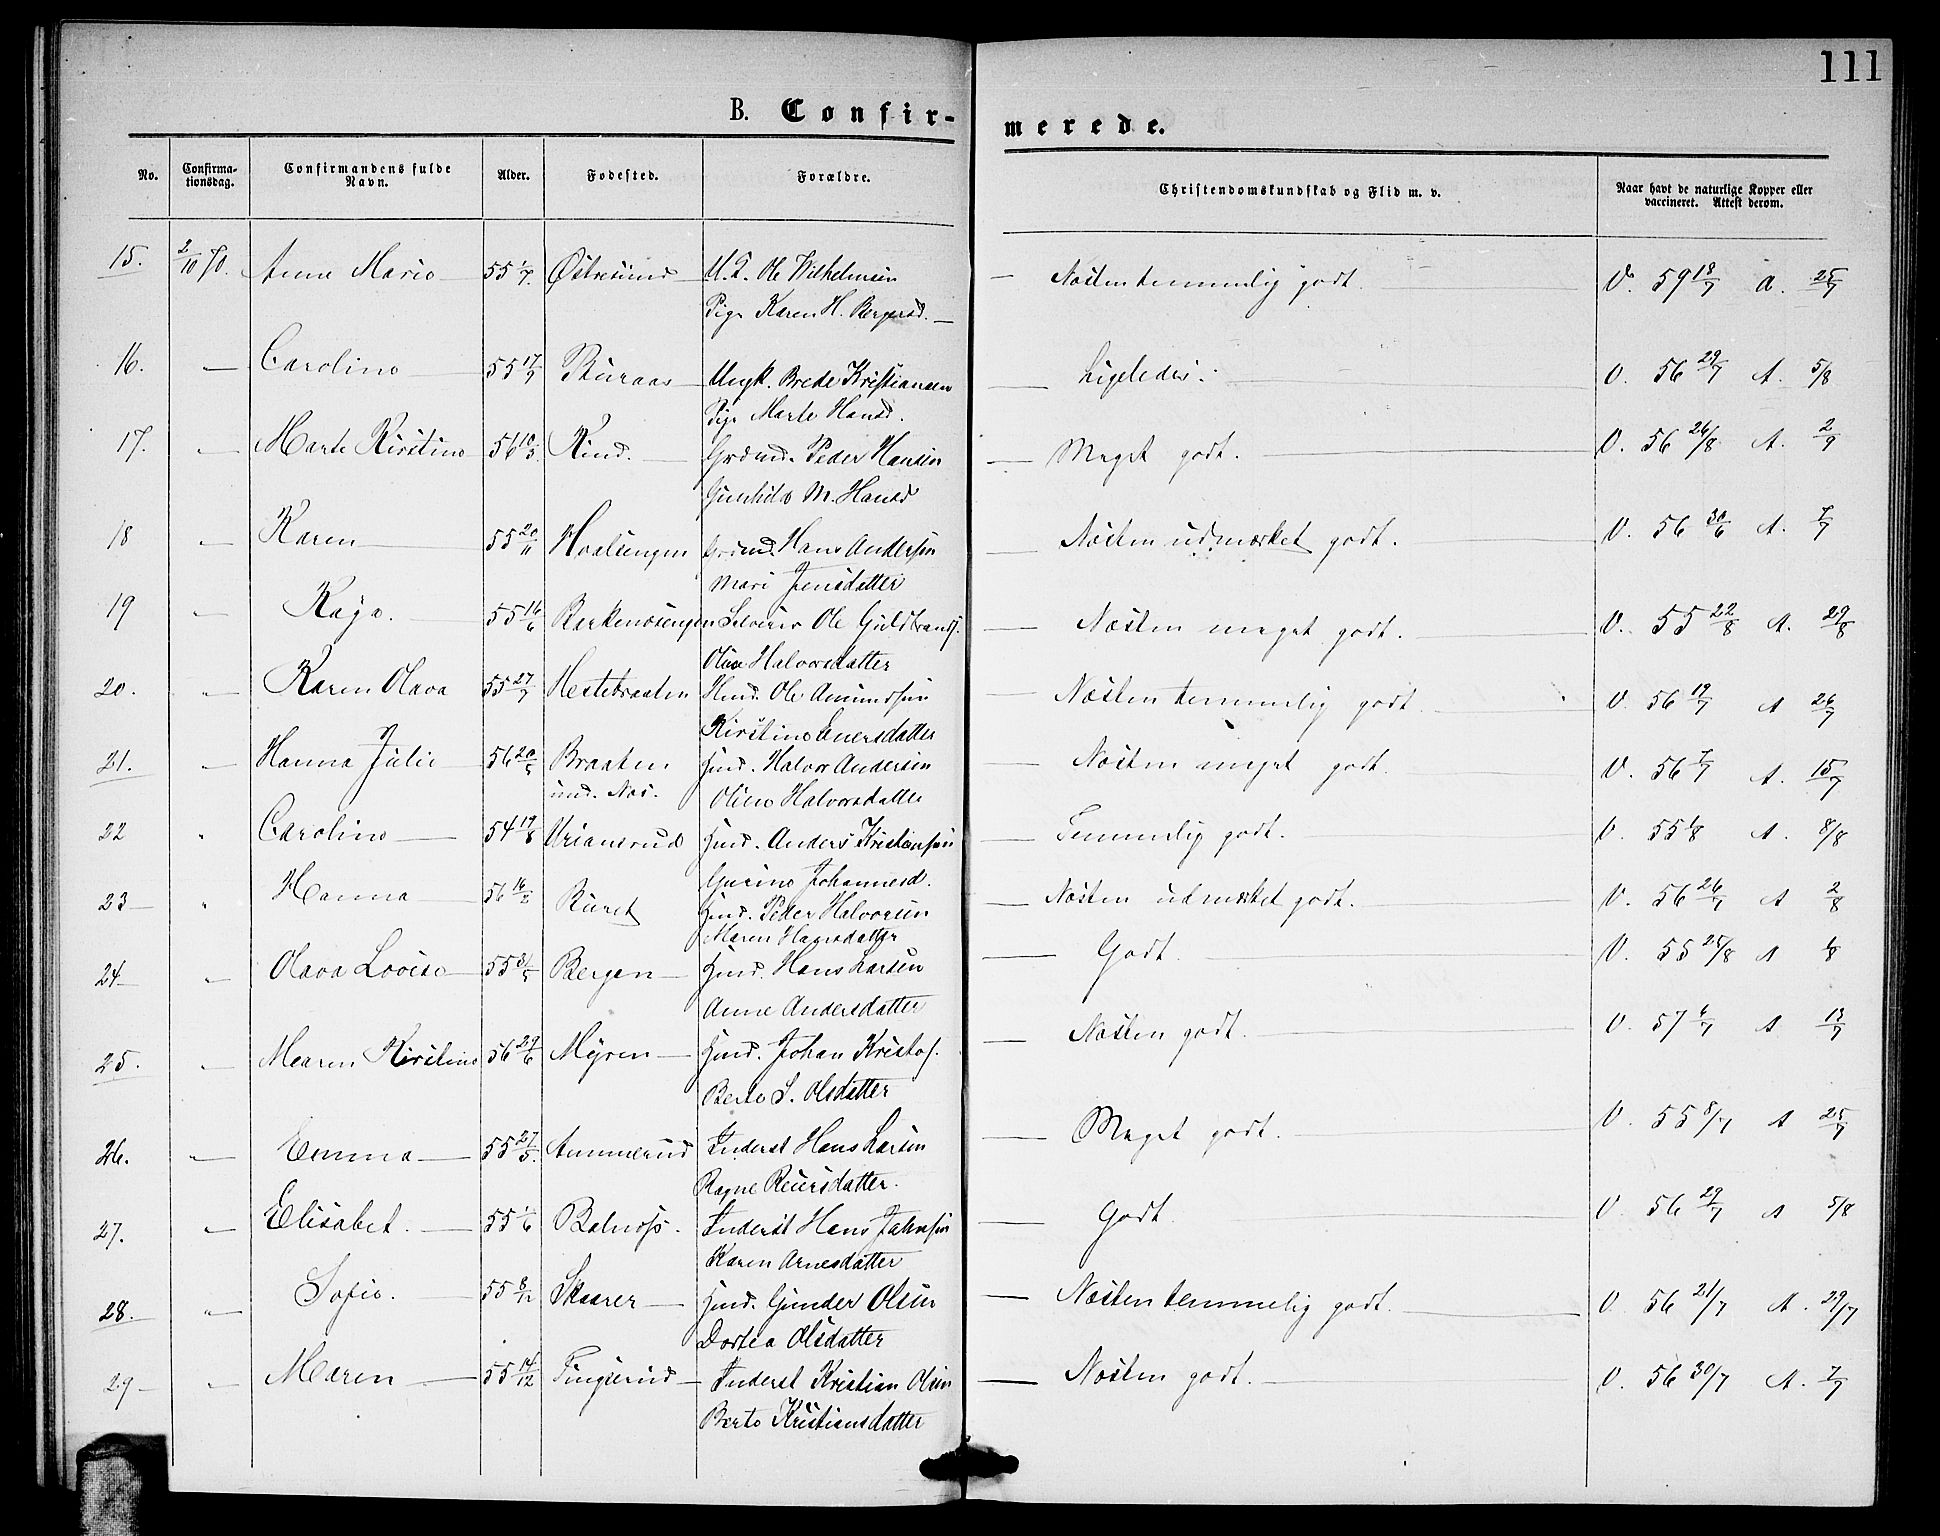 111
B. Confirmerede.
No. Confirmationsdag. Confirmandens fulde Navn. Alder. Fødested. Forældre. Christendomskundskab og Flid m. v. Naar havt de naturlige Kopper eller vaccineret. Attest derom.
15. 2/10 70. Anne Marie 55 1/7. U.K. Ole Wilhelmsen Næsten temmelig godt. V. 59 18/7 a. 25/7
Pige Karen H. Bergersd.
16. — Caroline 55 17/9 Buraas Ungk. Brede Kristiansen Ligeledes. V. 56 29/7 A. 5/8
Pige Marte Hansd.
17. — Marte Kirstine 56 10/5. Rud. Grdmd. Peder Hansen Meget godt. V. 56 26/8 A. 2/9
Gunhild M. Hansd
18 — Karen 55 20/11 Hvalsengen Grdmd. Hans Andersen Næsten udmærket godt. V. 56 30/6 A. 7/7
Mari Jensdatter
19 — 55 16/6 Selveier Ole Guldbrands. Næsten meget godt. V. 55 22/8 A. 29/8
Oline Halvorsdatter
20. " Karen Olava 55 27/7 Hestebraaten Hmd. Ole Amundsen Næsten temmelig godt. V. 56 19/7 A 26/7
Kirstine Enersdatter
21. — Hanna Julie 56 20/5 Braaten Hmd. Halvor Andersen Næsten meget godt V. 56 7/7 A. 15/7
und. Næs. Oline Halvorsdatter
22 " Caroline 54 19/8 Uriansrud Hmd. Anders Kristiansen Temmelig godt. V. 55 1/8 A. 8/8
Gurine Johannesd.
23 " Hanna 56 16/2 Ruret Hmd. Peder Halvorsen Næsten udmærket godt. V. 56 26/7 A 2/8
Maren Hansdatter
24 " Olava Lovise 55 31/5 Bergen Hmd. Hans Larsen Godt. V. 55 25/8 A 1/8
Anne Andersdatter
25. — Maren Kirstine 56 29/6 Myren Hmd. Johan Kristof. Næsten godt. V. 57 6/7 A 13/7
Berte S. Olsdatter
26. — Emma 55 27/5. Ammerud Inderst Hans Larsen Meget godt. V. 55 8/7 A 25/7
Ragne Reiersdatter.
27. " Elisabet. 55 1/6 Inderst Hans Jahnsen Godt. V. 56 29/7 A 5/8
Karen Arnesdatter
28. " Sofie. 55 8/12 Skaarer Hmd. Gunder Olsen Næsten temmelig godt. V. 56 21/7 A. 29/7
Dortea Olsdatter
29 — Maren 55 14/12 Tingsrud Inderst Kristian Olsen Næsten godt. V. 56 30/7 A. 7/7
Berte Kristiansdatter